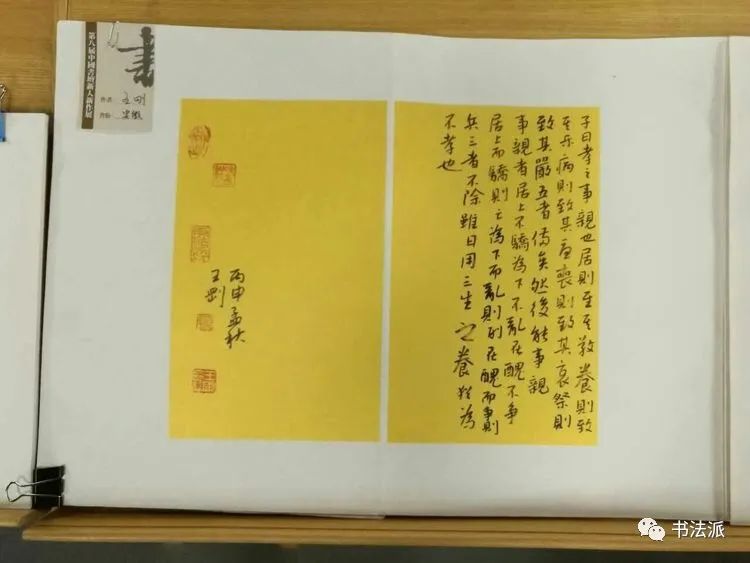 第八届中國書壇新人新作展
書
作者 王刚
省份 安徽
子曰孝之事親也居則至其敬養則致
其乐病則致其憂喪則致其哀祭則
致其嚴五者備矣然後能事親
事親者居上不驕為下不亂在醜不爭
居上而驕則亡為下而亂則刑在醜而爭則
兵三者不除雖日用三生之養猶為
不孝也
丙申孟秋
王剛
书法派